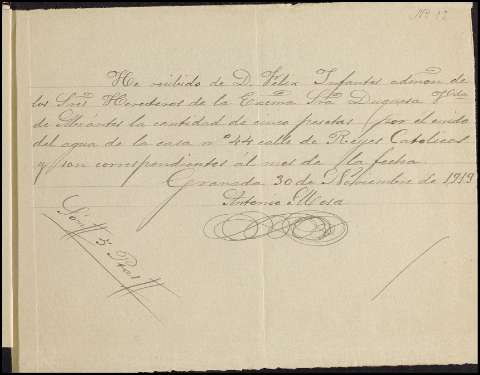 Nº 12
He recibido de D. Felix Infantes admon de
los Sres Herederos de la Excma Sra Duquesa Vda
de Abrántes la cantidad de cinco pesetas por el
del agua de la casa nº 44 calle de Reyes Catolicos
y son correspondientes al mes de la fecha
Granada 30 de Noviembre de 1919
Antonio Mesa
Son 5 Ptas